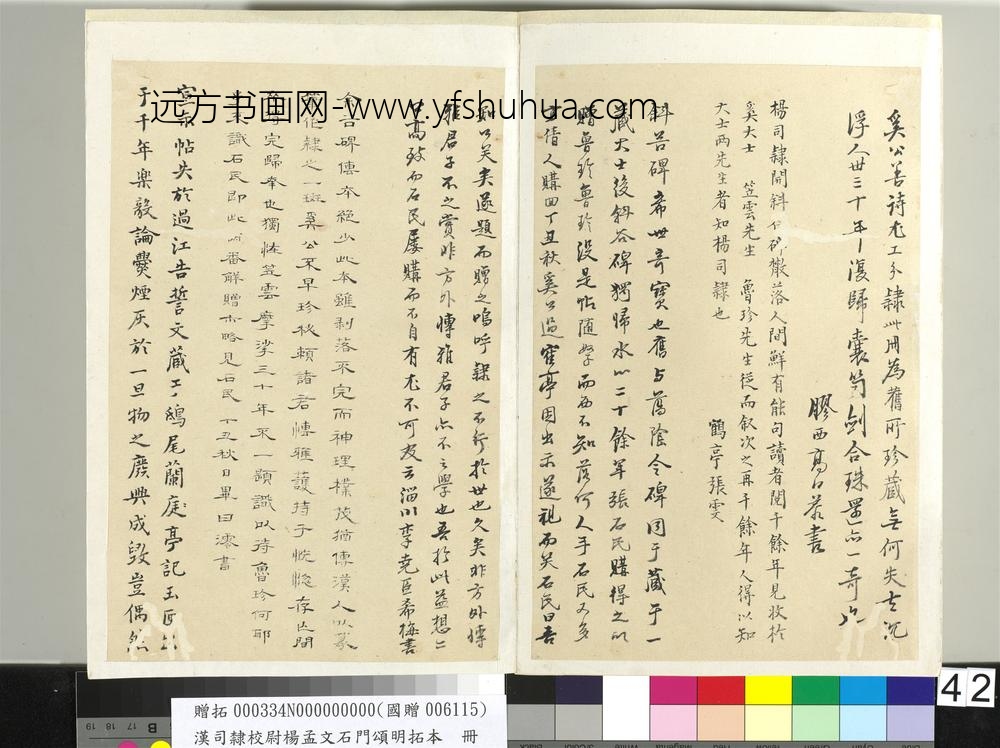 奚公善詩尤工分隸此冊為舊所珍藏無何失去沉
浮人世三十年復歸囊笥劍合珠還亦一奇也
膠西高口荅書
楊司隸開斜谷碑散落人間鮮有能句讀者閱千餘年見收於
奚大士 笠雲先生 魯珍先生從而敘次之再千餘年人得以知
大士兩先生者知楊司隸也
鶴亭張雯
斜谷碑希世奇寶也舊與蕩陰令碑同于藏于一
藏大士後斜谷碑獨歸水以二十餘年張石民購得之以
贈魯珍魯珍沒是帖隨 而西不知落何人手石民又多
方倩人購回丁丑秋奚公過 亭因出示遂祖而笑石民曰吾
知公笑矣遂題而贈之嗚呼隸之不行於世也久矣非方外博
雅君子不之賞非方外博雅君子亦不之學也吾於此益想二
公高致而石民屢購而不自有尤不可友云淄川李堯臣希梅書
谷碑傳本絕少此本雖剝落不完而神理樸茂猶傳漢人以篆
作隸之一斑奚公不早珍秘賴諸君博雅護持于恍惚存亡間
完歸奉也獨怪笠雲摩挲三十年不一題識以待魯珍何耶
識石民即此 番解贈亦略見石民 丁丑秋日畢曰澪書
宣示帖失於過江告誓文藏于鴟尾蘭庭亭記玉匣
于千年樂毅論爨煙灰於一旦物之廢興成毀豈偶然
远方书画网-www.yfshuhua.com
42
贈拓000334N000000000(國贈006115)
漢司隸校尉楊孟文石門頌明拓本 冊
19 18 17 16 15
B
Black
White
Magenta